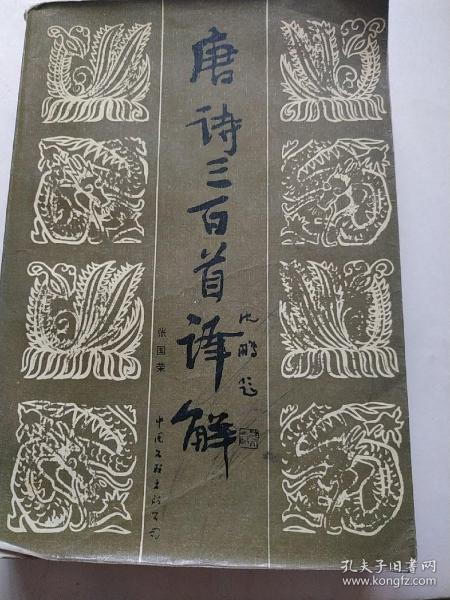 唐诗三百首译解
沈鹏题
张国荣
中国文联出版公司
孔夫子旧书网
www.kongfz.com